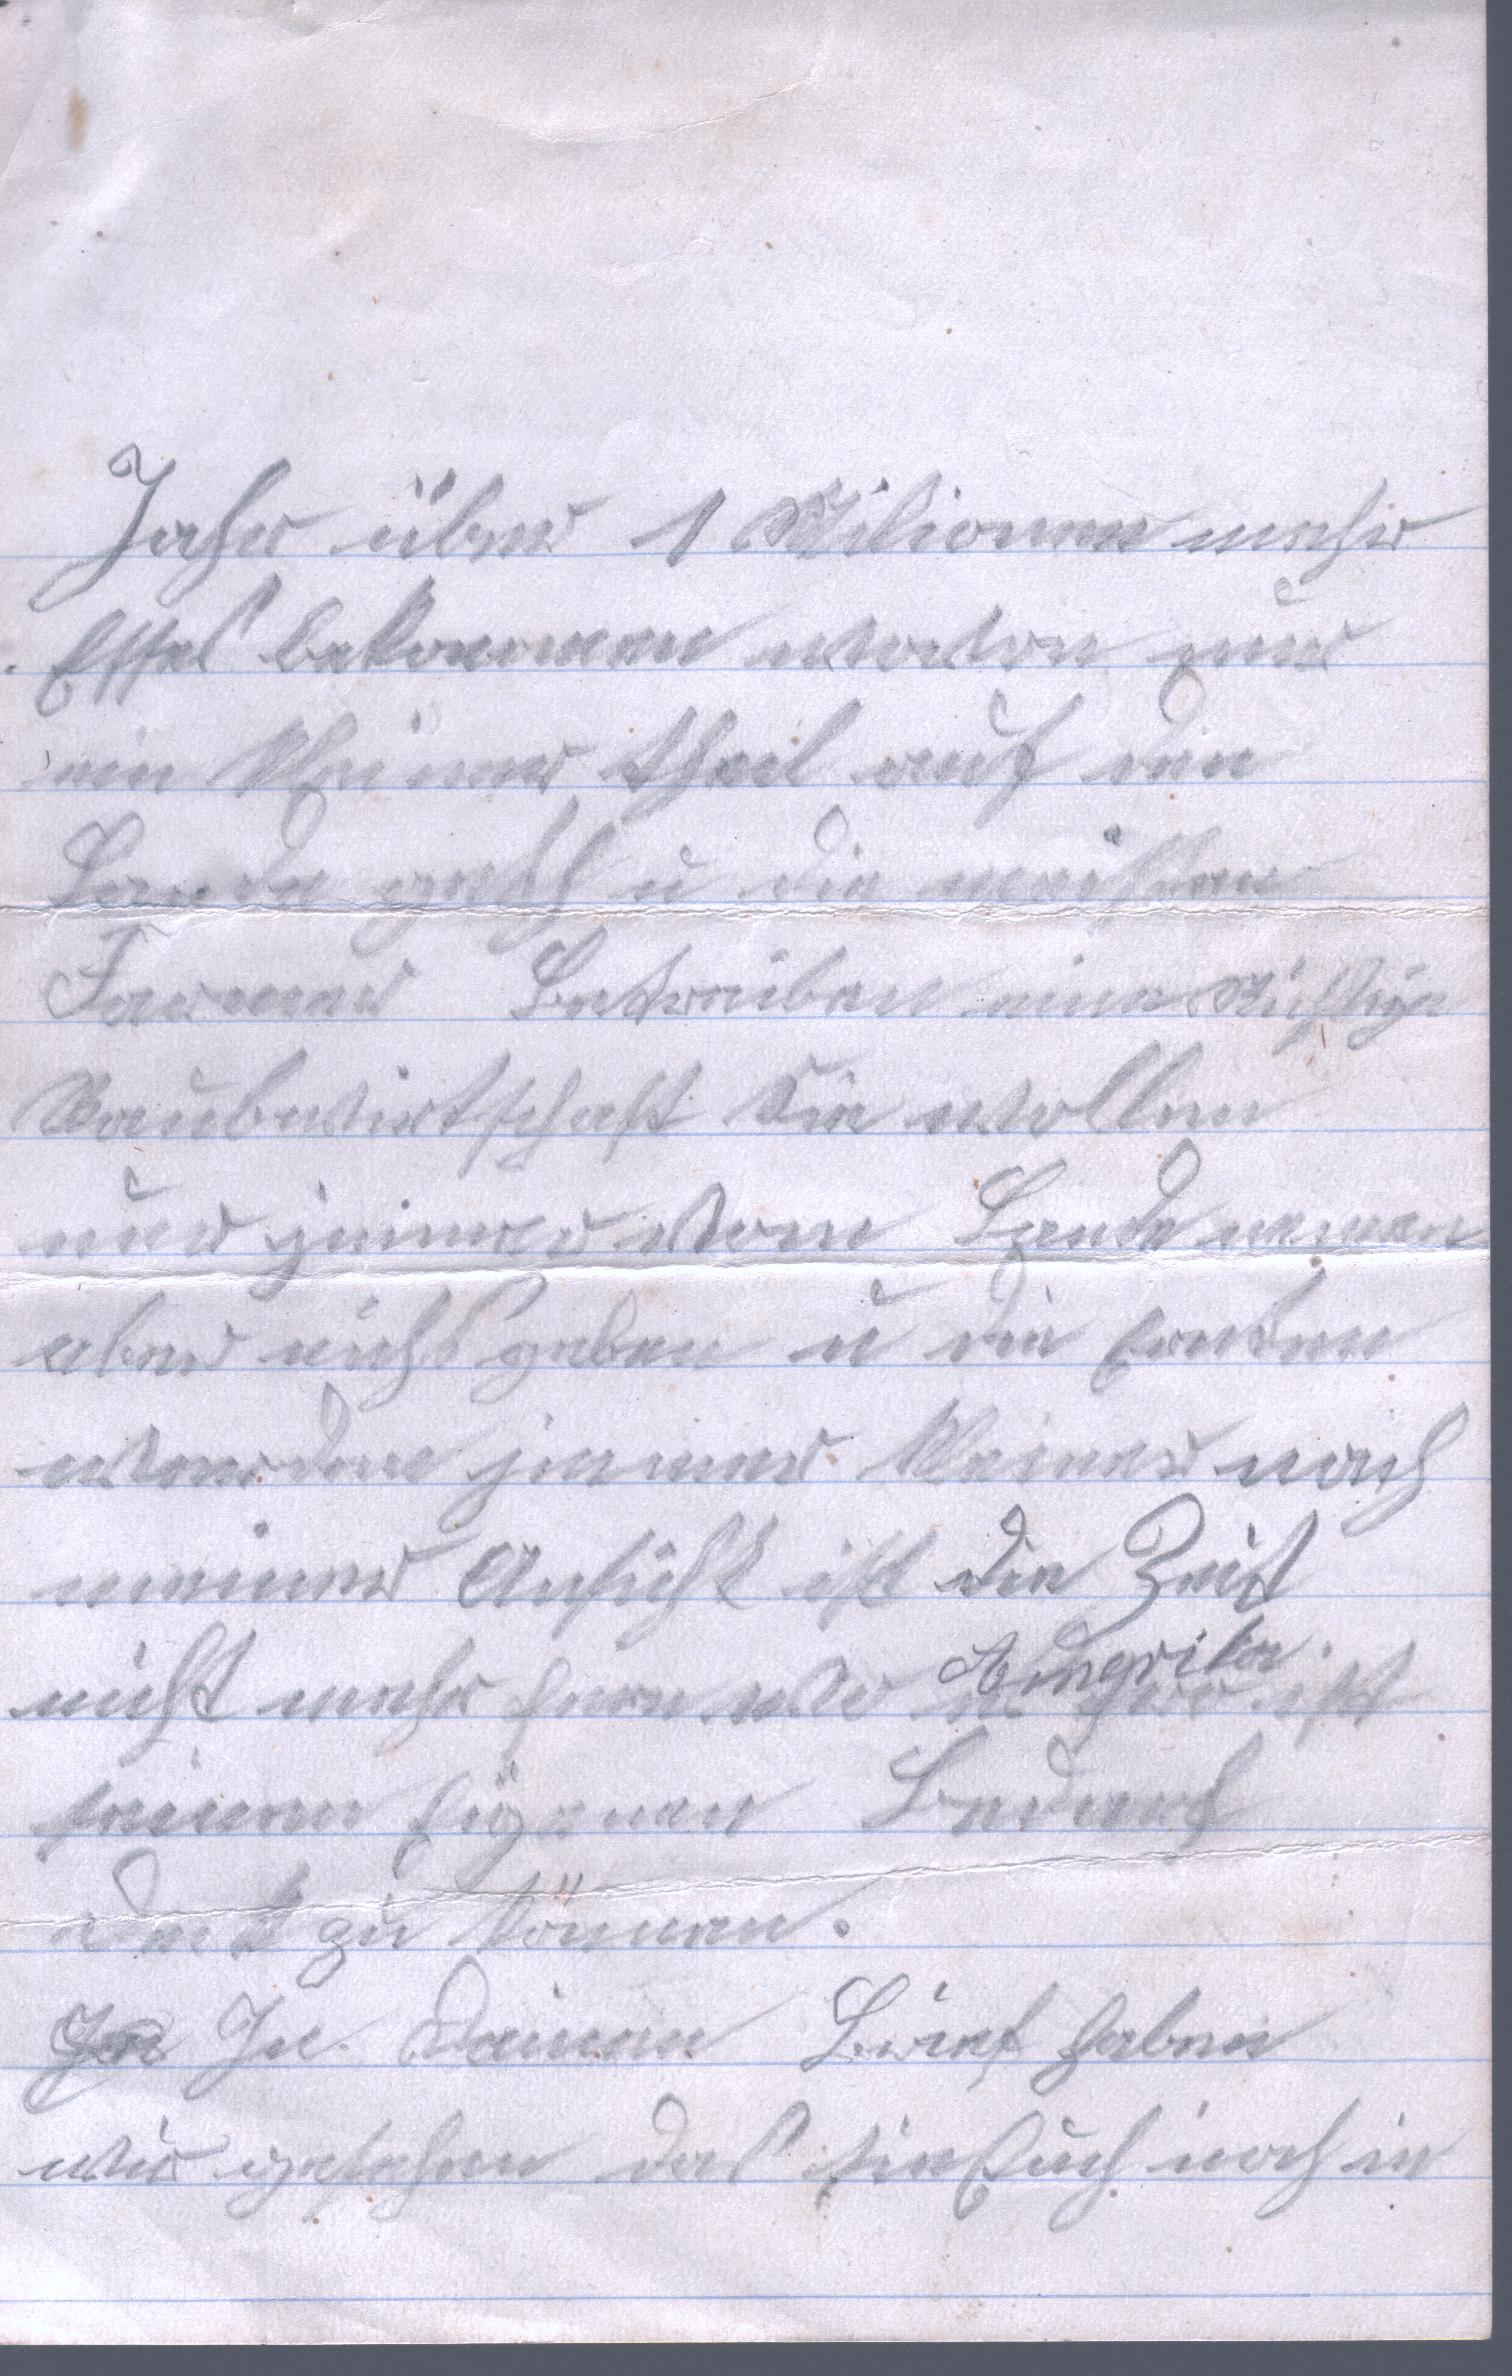 Jahr über 1 Milionen mehr
Esser bekommen wovon nur
ein kleiner theil auf den
Lande geht u die meisten
Farmer Betreiben eine Richtige
Raubwirtschaft Sie wollen
nur jmmer vom Lande nemen
aber nichts geben u die Ernten
werden jmmer kleiner nach
meiner Ansicht ist die Zeit
nicht mehr fern wo Amerika ist
seinen Eigenen Bedarf
zu können.
In Deinen Brief haben
wir gesehen das sie Euch noch in